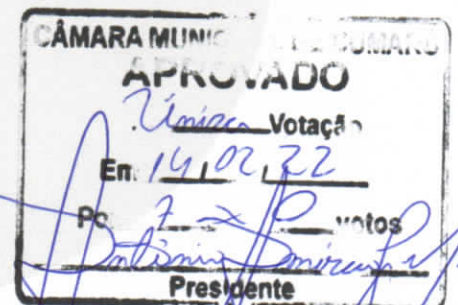 CÂMARA MUNIC
APROVADO
Única Votação
Em 14/02/22
Po 7 x 0 votos
Presidente